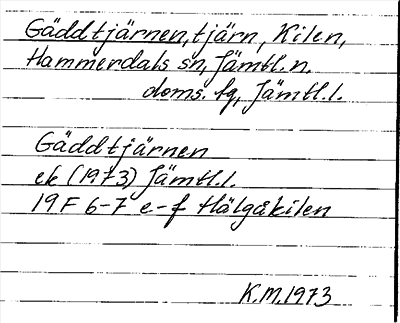 Gäddtjärnen, tjärn, Kilen,
Hammerdals sn, Jämtl. n.
doms. fg, Jämtl. l.
Gäddtjärnen
ek (1973) Jämtl. l.
19 F 6-7 e-f Hälgåkilen
K.M. 1973